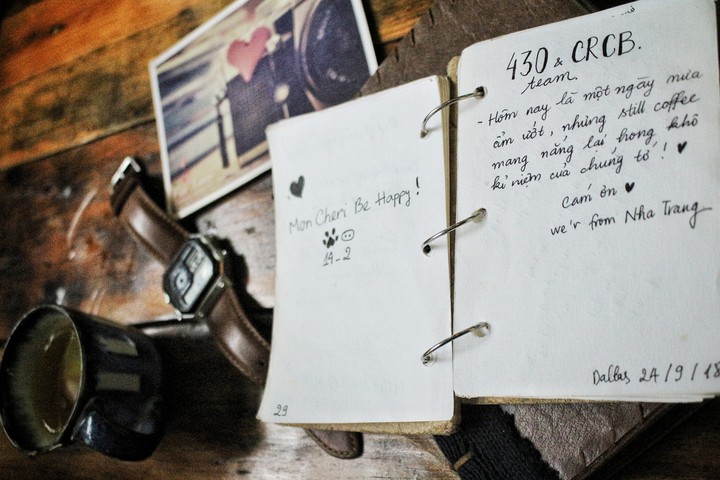 Mon Cheri Be Happy!
14-2
29
430 & CRCB.
team.
- Hôm nay là một ngày mưa
ẩm ướt, nhưng still coffee
mang nắng lại hong khô
kỉ niệm của chúng tớ! ♥
Cám ơn ♥
we'r from Nha Trang
Dallas 24/9/18